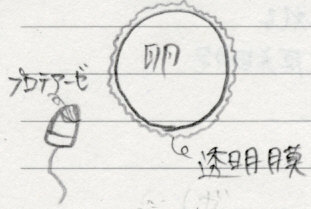 卵
プロテアーゼ
透明膜